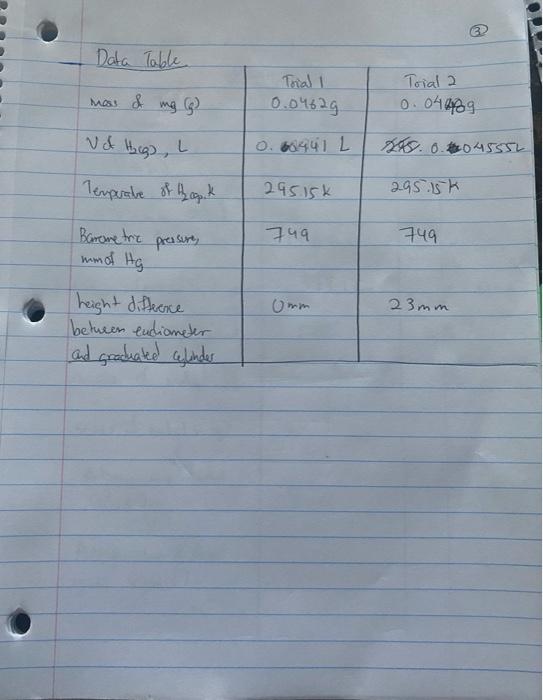 3
Data Table
Trial 1 Trial 2
mass of mg (g) 0.0462g 0.04 g
V of H2(g), L 0. 441 L 0. 04555L
Temperature of H2(g), K 295.15k 295.15k
Barometric pressure, 749 749
mm of Hg
height difference 0mm 23mm
between eudiometer
and graduated cylinder